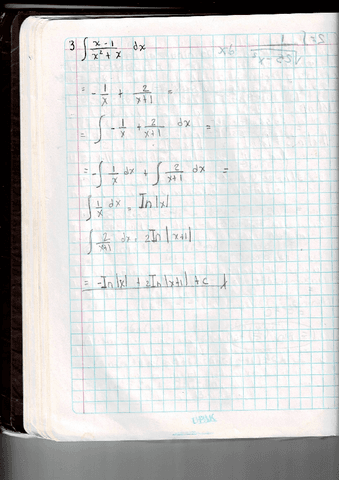 3 ∫ x-1 / x² + x dx
= - 1/x + 2/x+1 =
= ∫ - 1/x + 2/x+1 dx =
= - ∫ 1/x dx + ∫ 2/x+1 dx =
∫ 1/x dx = In|x|
∫ 2/x+1 dx = 2In|x+1|
= -In|x| + 2In|x+1| + c